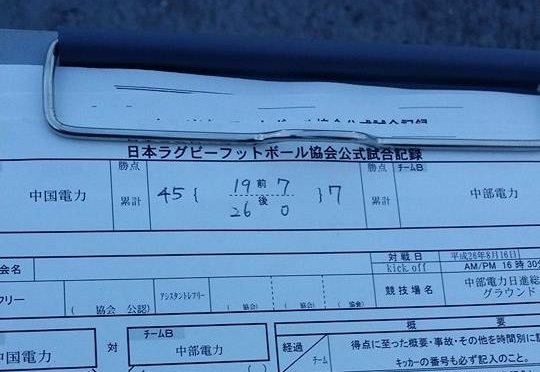 日本ラグビーフットボール協会公式試合記録
中国電力 勝点 累計 45 { 19 前 7 } 7 勝点 累計 チームB 中部電力
26 後 0
会名 対戦日 平成26年8月16日
kick off AM/PM 16時30分
フリー アシスタントレフリー 競技場名 中部電力日進総
グラウンド
( 協会 公認) ( 協会) ( 協会) ( 協会)
概 要
中国電力 対 チームB 中部電力 経過 チーム 得点に至った概要・事故・その他を時間別に記
キッカーの番号も必ず記入のこと。